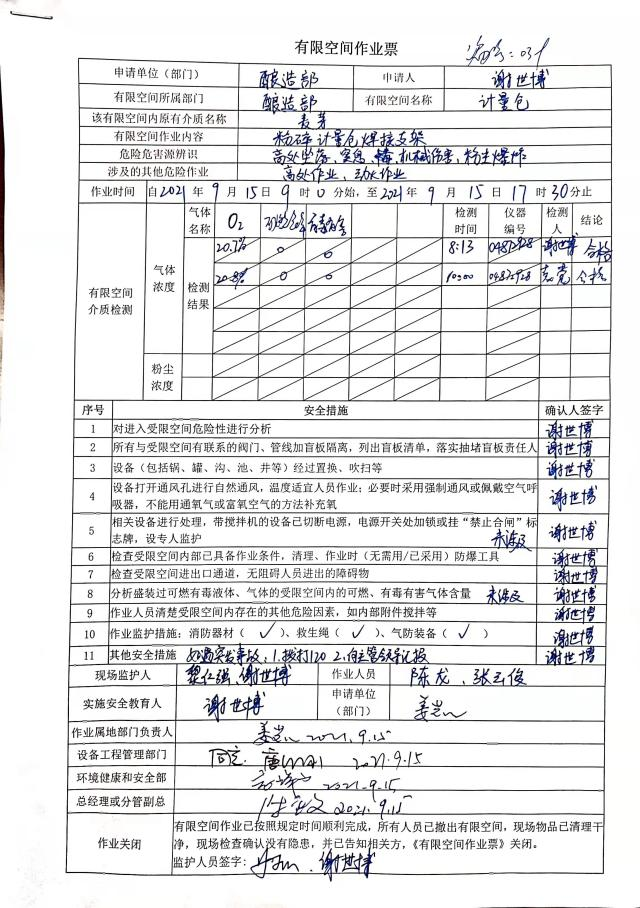 有限空间作业票
申请单位（部门） 酿造部 申请人 谢世博
有限空间所属部门 酿造部 有限空间名称 计量仓
该有限空间内原有介质名称 麦芽
有限空间作业内容 粉碎计量仓焊接支架
危险危害源辨识 高处坠落、窒息、机械伤害、粉尘爆炸
涉及的其他危险作业 高处作业、动火作业
作业时间 自2021年9月15日9时0分始，至2021年9月15日17时30分止
有限空间介质检测 气体浓度 气体名称 O2 检测时间 仪器编号 检测人 结论
检测结果 20.7% 0 0 8:13 谢世博 合格
20.8% 0 0 合格
粉尘浓度
序号 安全措施 确认人签字
1 对进入受限空间危险性进行分析 谢世博
2 所有与受限空间有联系的阀门、管线加盲板隔离，列出盲板清单，落实抽堵盲板责任人 谢世博
3 设备（包括锅、罐、沟、池、井等）经过置换、吹扫等 谢世博
4 设备打开通风孔进行自然通风，温度适宜人员作业；必要时采用强制通风或佩戴空气呼
吸器，不能用通氧气或富氧空气的方法补充氧 谢世博
5 相关设备进行处理，带搅拌机的设备已切断电源，电源开关处加锁或挂“禁止合闸”标
志牌，设专人监护 未涉及 谢世博
6 检查受限空间内部已具备作业条件，清理、作业时（无需用/已采用）防爆工具 谢世博
7 检查受限空间进出口通道，无阻碍人员进出的障碍物 谢世博
8 分析盛装过可燃有毒液体、气体的受限空间内的可燃、有毒有害气体含量 未涉及 谢世博
9 作业人员清楚受限空间内存在的其他危险因素，如内部附件搅拌等 谢世博
10 作业监护措施：消防器材（✓）、救生绳（✓）、气防装备（✓） 谢世博
11 其他安全措施 如遇突发事故：1.拨打120 2.向主管领导汇报 谢世博
现场监护人 黎仁强、谢世博 作业人员 陈龙、张云俊
实施安全教育人 谢世博 申请单位（部门）
作业属地部门负责人 2021.9.15
设备工程管理部门 同意 2021.9.15
环境健康和安全部 2021.9.15
总经理或分管副总 2021.9.15
作业关闭 有限空间作业已按照规定时间顺利完成，所有人员已撤出有限空间，现场物品已清理干
净，现场检查确认没有隐患，并已告知相关方，《有限空间作业票》关闭。
监护人员签字： 谢世博